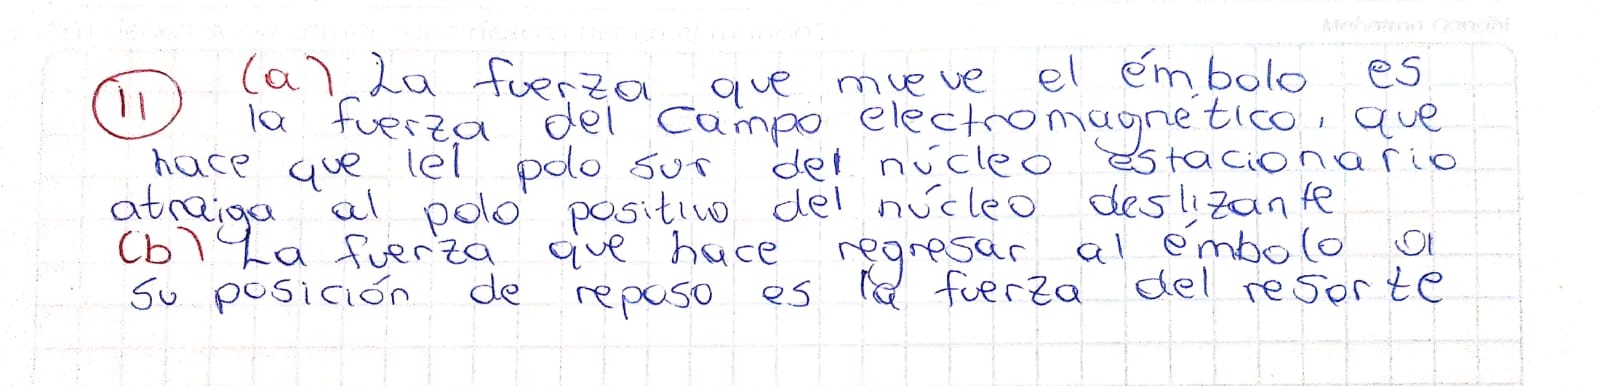 Mahatma Gandhi
11 (a) La fuerza que mueve el émbolo es
la fuerza del campo electromagnético, que
hace que lel polo sur del núcleo estacionario
atraiga al polo positivo del núcleo deslizante
(b) La fuerza que hace regresar al émbolo a
su posición de reposo es la fuerza del resorte